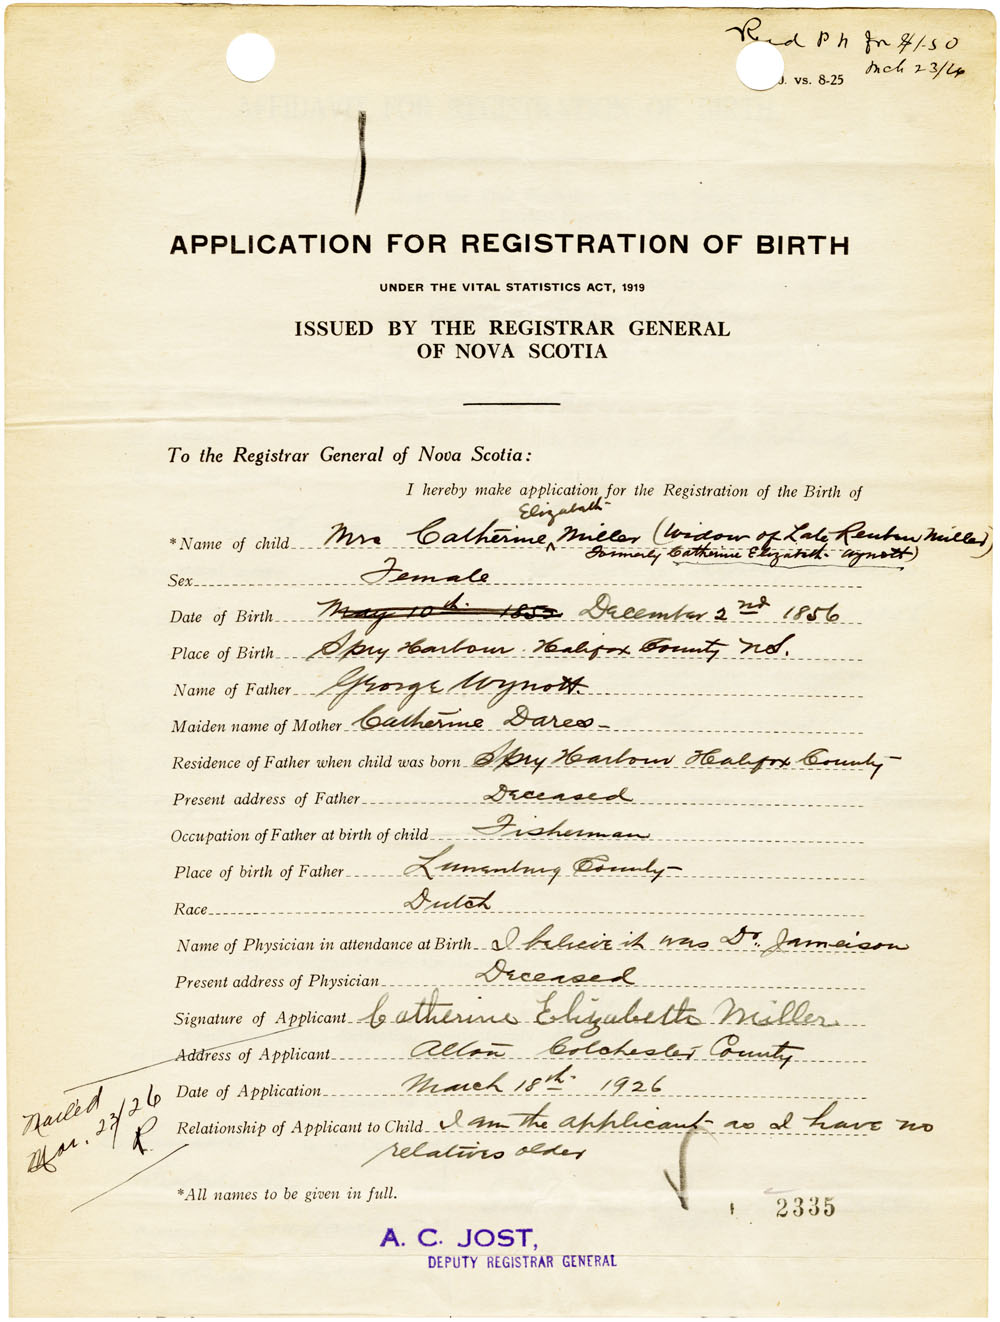 Rec'd P N for $1.50
Mch 23/26
. vs. 8-25
APPLICATION FOR REGISTRATION OF BIRTH
UNDER THE VITAL STATISTICS ACT, 1919
ISSUED BY THE REGISTRAR GENERAL
OF NOVA SCOTIA
To the Registrar General of Nova Scotia:
I hereby make application for the Registration of the Birth of
Elizabeth
*Name of child Mrs Catherine Miller (Widow of Late Reuben Miller)
formerly Catherine Elizabeth Wynott)
Sex Female
Date of Birth May 10th 1853 December 2nd 1856
Place of Birth Spry Harbour Halifax County N.S.
Name of Father George Wynott.
Maiden name of Mother Catherine Darees
Residence of Father when child was born Spry Harbour Halifax County
Present address of Father Deceased
Occupation of Father at birth of child Fisherman
Place of birth of Father Lunenburg County
Race Dutch
Name of Physician in attendance at Birth I believe it was Dr. Jameison
Present address of Physician Deceased
Signature of Applicant Catherine Elizabeth Miller
Address of Applicant Alton Colchester County
Date of Application March 18th 1926
Relationship of Applicant to Child I am the applicant as I have no
relatives older
Mailed
Mar. 23/26
R.
*All names to be given in full.
2335
A. C. JOST,
DEPUTY REGISTRAR GENERAL